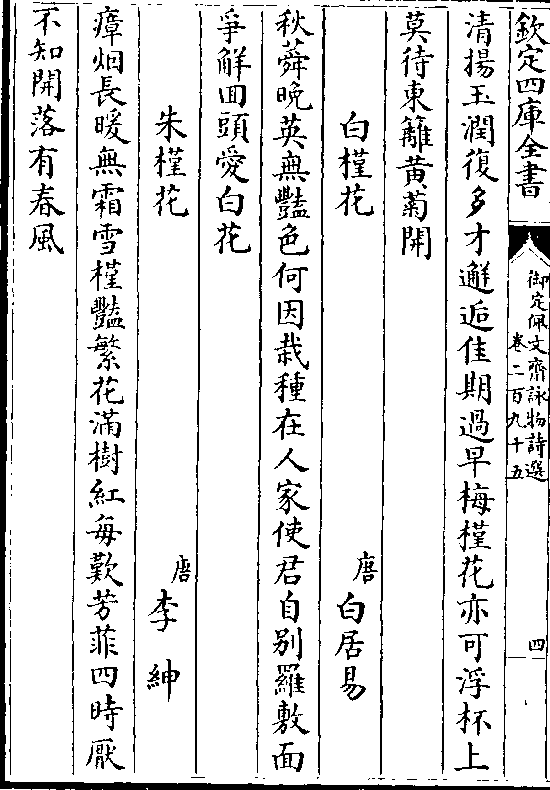 欽定四庫全書
御定佩文齋詠物詩選
卷二百九十五
四
清揚玉潤復多才邂逅佳期過早梅槿花亦可浮杯上
莫待東籬黃菊開
白槿花
唐
白居易
秋蕣晚英無豔色何因栽種在人家使君自別羅敷面
爭解回頭愛白花
朱槿花
唐
李紳
瘴烟長暖無霜雪槿豔繁花滿樹紅每歎芳菲四時厭
不知開落有春風